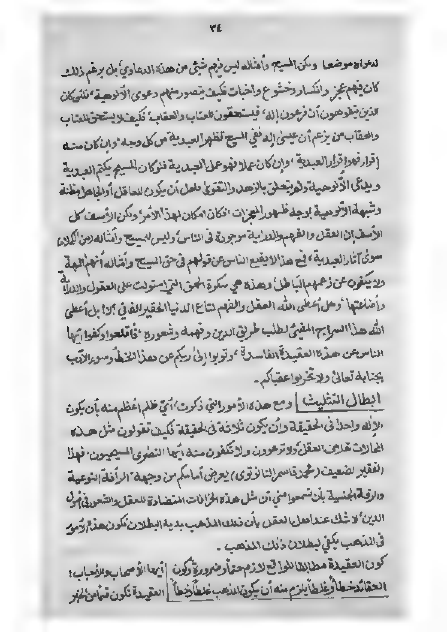 ٣٤
لدعواه موضعا ولكن المسيح وأمثاله ليس فيهم شيئ من هذه الدعاوي بل برغم ذلك
كان فيهم عجز وانكسار وخشوع واخبات فكيف يتصور منهم دعوى الألوهية،
الذين يظلمون أن فرعون إله فيستحقون للعذاب والعقاب، فكيف لا يستحق للعذاب
والعقاب من يزعم أن عيسى إله ففي المسيح تظهر العبدية من كل وجه، وإن كان منه
إقرار فهو إقرار العبدية، وإن كان عملا فهو عمل العبدية فلو كان المسيح يكتم العبدية
ويدعى الألوهية ولم يتعلق بالزهد والتقوى فلعل أن يكون للعاقل أو الجاهل مظنة
وشبهة الألوهية بوجه ظهور المعجزات، فكان امكان لهذا الأمر، ولكن الأسف كل
الأسف إن العقل والفهم والدراية موجودة فى الناس وليس للمسيح وأمثاله
سوى آثار العبدية، فمع هذا لا يمتنع الناس عن قولهم فى حق المسيح وأمثاله أنهم آلهة
ولا يكفون عن زعمهم الباطل وهذه هي سكرة الحق التى استولت على العقول والدراية
وأضاعتها، وهل أعطى الله العقل والفهم لمتاع الدنيا الحقير الفاني؟ لا بل أعطى
الله هذا السراج المضيئ لطلب طريق الدين وفهمه وشعوره، فأقلعوا وكفوا أيها
الناس عن هذه العقيدة الفاسدة، وتوبوا إلى ربكم عن هذا الخطأ وسوء الأدب
بجنابه تعالى ولا تخربوا عقباكم.
ابطال التثليث ومع هذه الأمور التى ذكرت، أي ظلم أعظم منه بأن يكون
الإله واحدا فى الحقيقة وأن يكون ثلاثة فى الحقيقة فكيف تقولون مثل هذه
المحالات خارجى العقل، ولا ترعوون ولا تكفون منه أيها النصارى المسيحيون، فهذا
الفقير الضعيف (محمد قاسم النانوتوى) يعرض أمامكم من وجهة الرأفة النوعية
والرقة الجنسية بأن تسمعوا منى أن مثل هذه الخرافات المتضادة للعقل والشعور فى أصول
الدين لا شك عند أهل العقل بأن ذلك المذهب بديه البطلان فكون هذه الأمور
فى المذهب يكفى لبطلان ذلك المذهب.
كون العقيدة مطابقا للواقع لازم حتما وضرورة وكون أيها الأصحاب والأحباب!
العقائد خطأ وغلطا يلزم منه أن يكون المذهب غلطا وخطأ العقيدة تكون قسما من الخبر